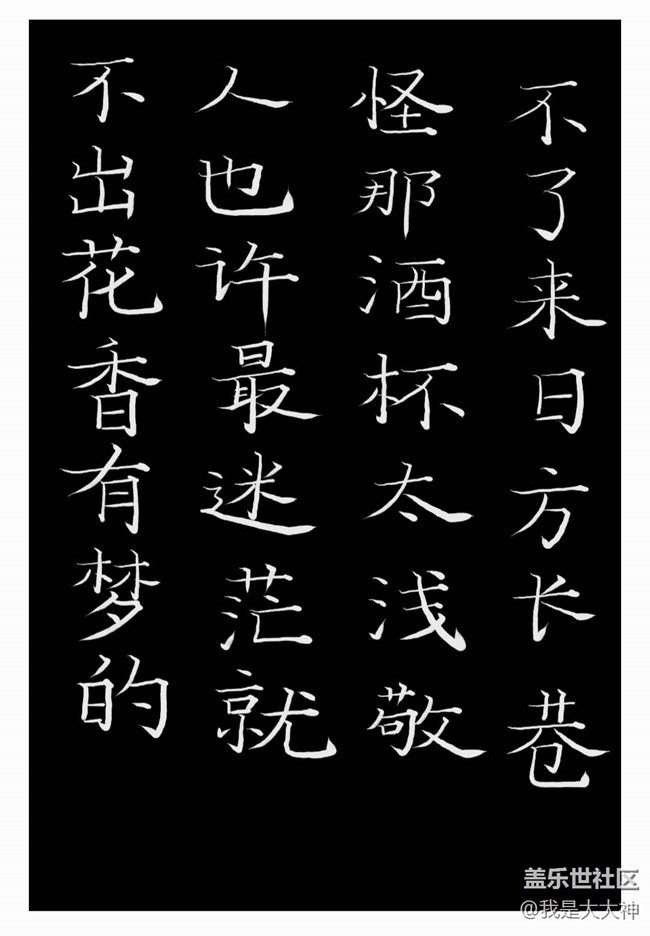 不了来日方长巷
怪那酒杯太浅敬
人也许最迷茫就
不出花香有梦的
盖乐世社区
@我是大大神